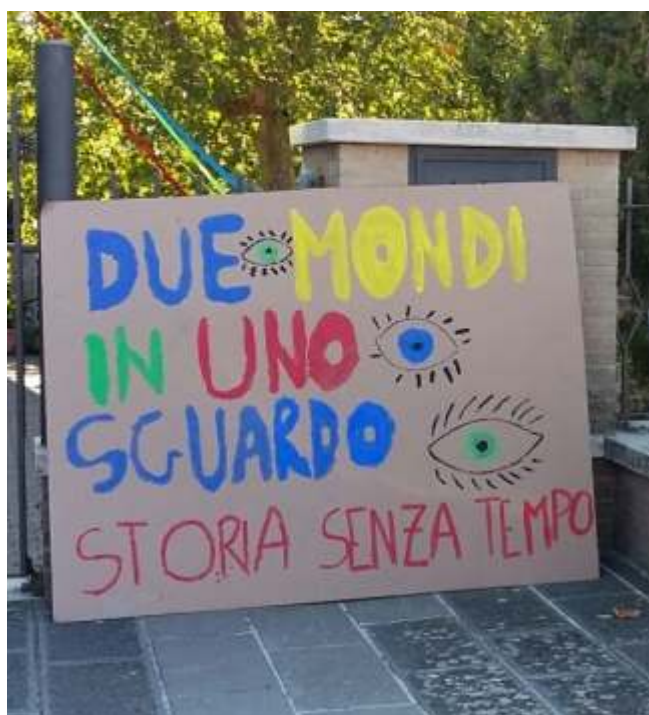 DUE MONDI
IN UNO
SGUARDO
STORIA SENZA TEMPO